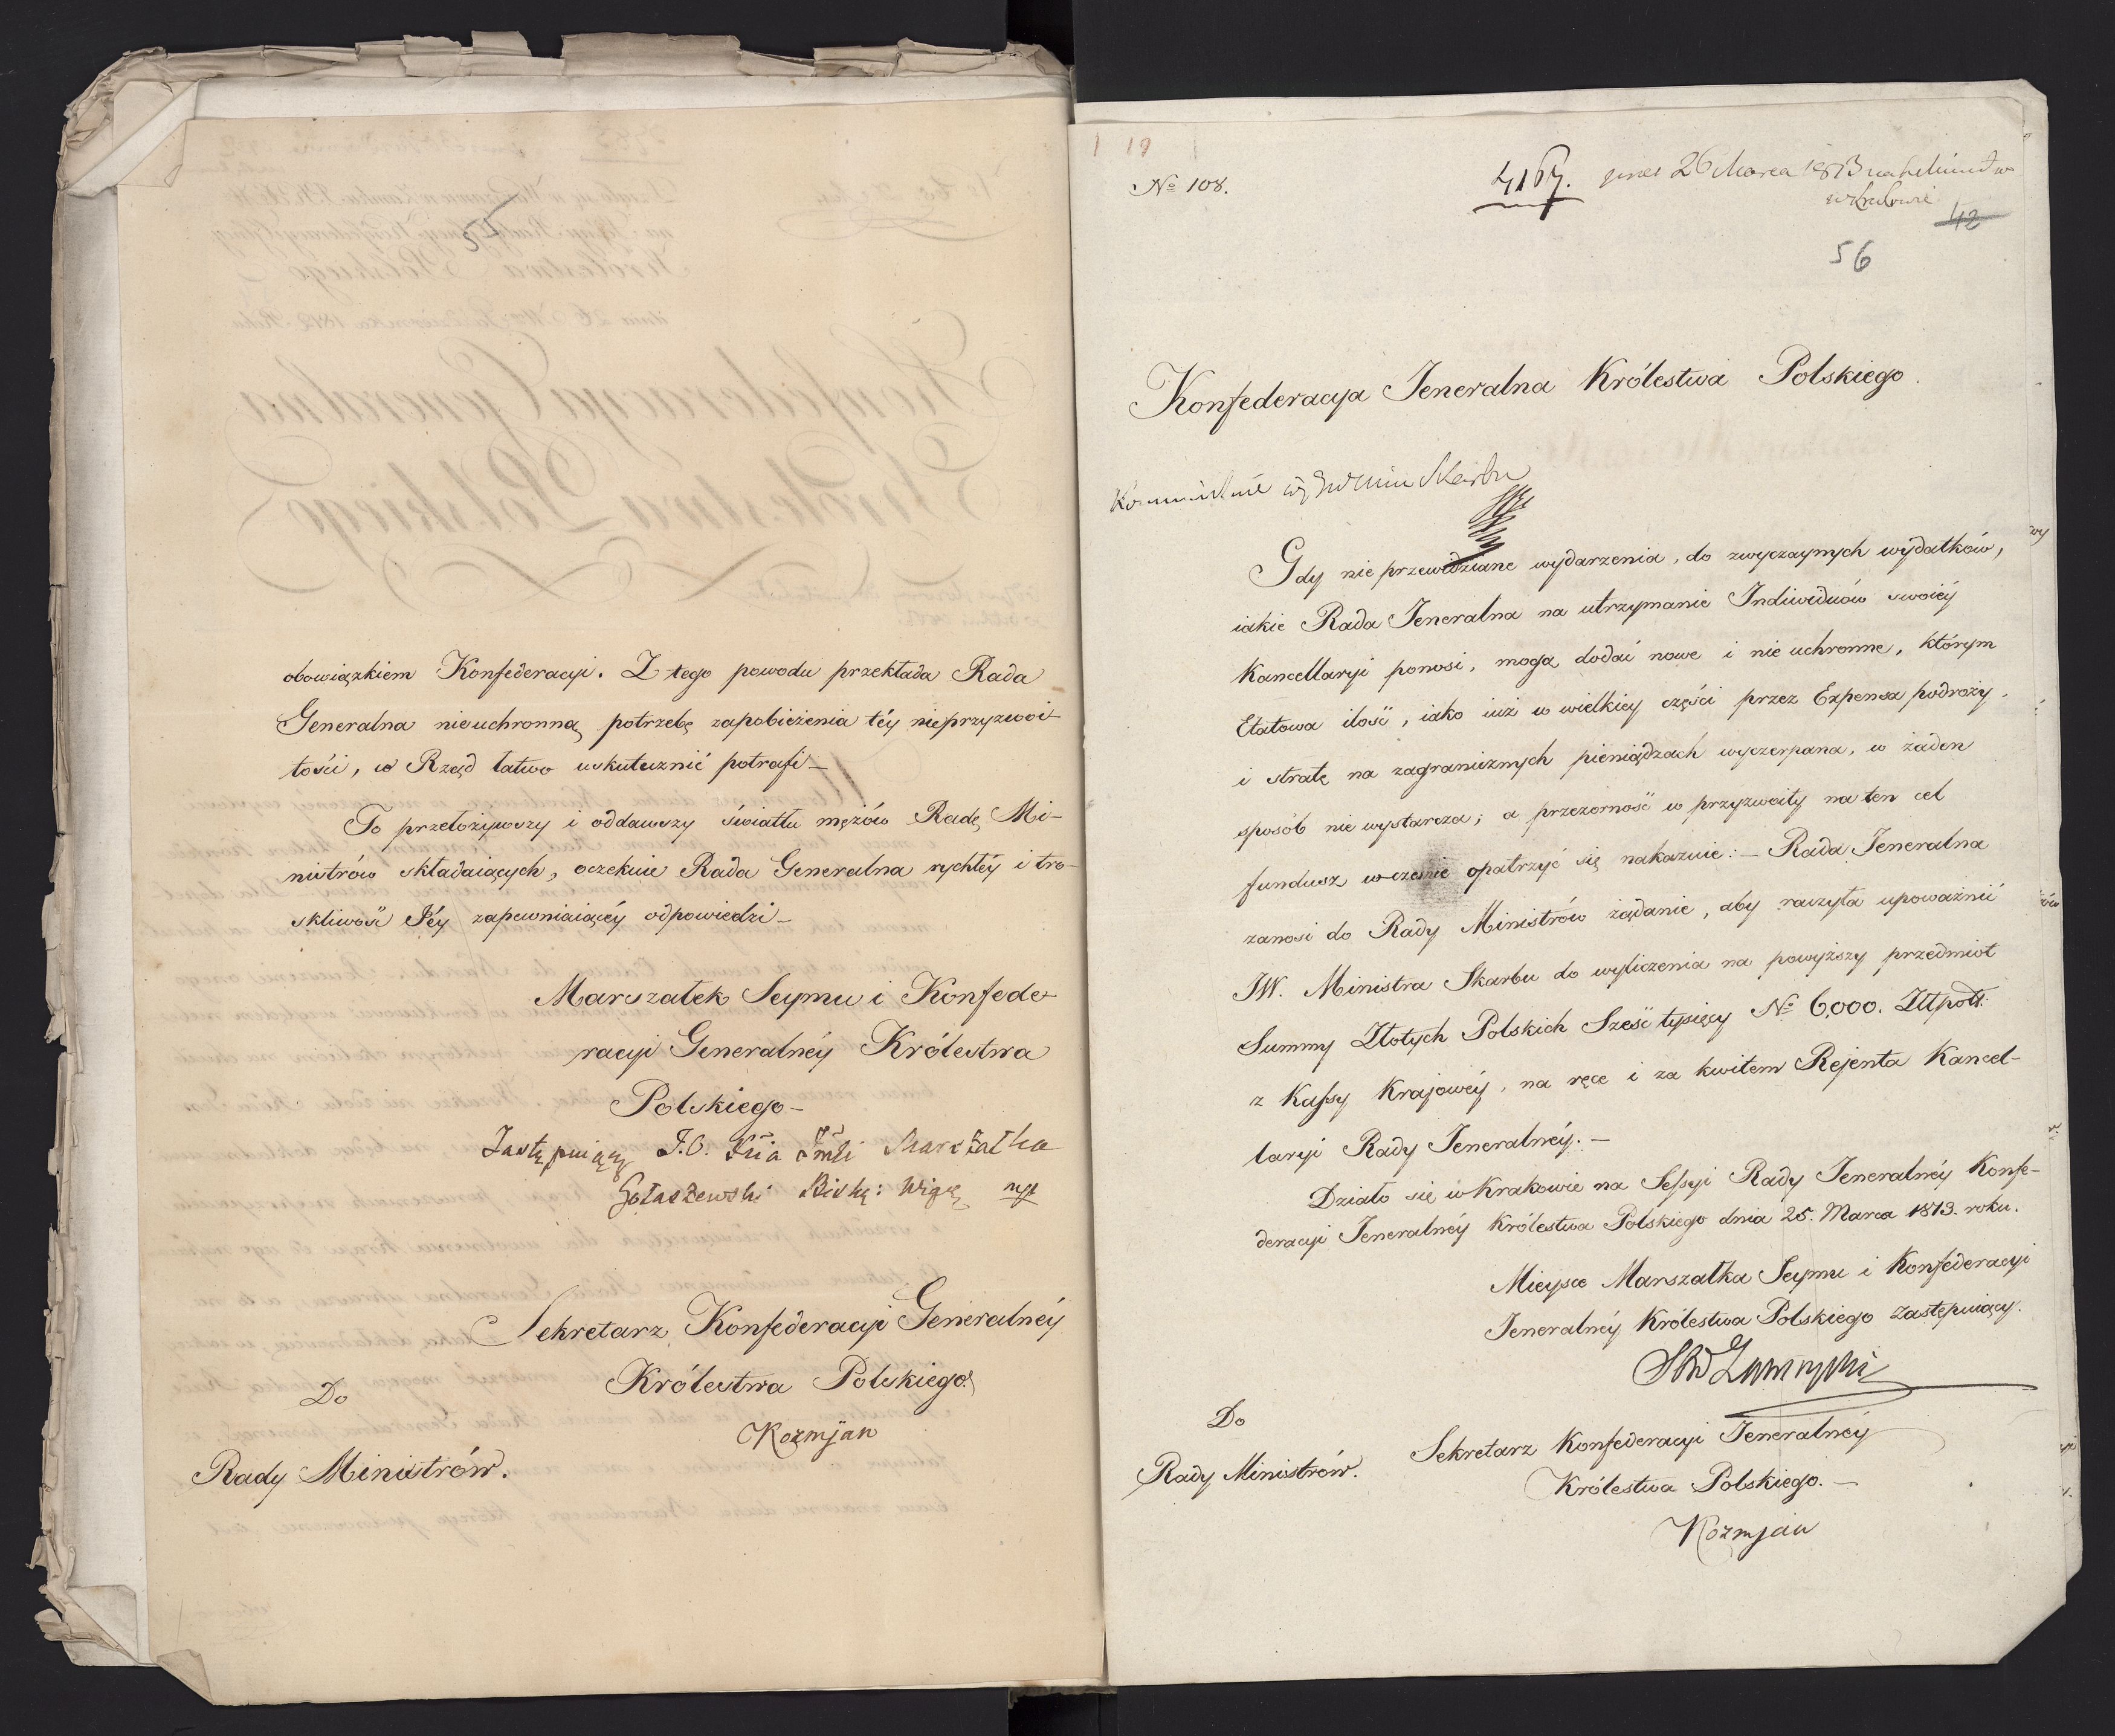 55
obowiązkiem Konfederacyi. Z tego powodu przekłada Rada
Generalna nieuchronną potrzebę zapobieżenia téy nieprzyzwoi-
tości, co Rząd łatwo uskutecznić potrafi –
To przełożywszy i oddawszy światłu mężów Radę Mi-
nistrów składaiących, oczekuie Rada Generalna rychłéy i tro-
skliwość Jéy zapewniaiącéy odpowiedzi –
Marszałek Seymu i Konfede-
racyi Generalnéy Królestwa
Polskiego –
Zastępuiący J.O. Xcia Jmci Marszałka
Gołaszewski Biskup Wigi mp
Sekretarz Konfederacyi Generalnéy
Królestwa Polskiego.
Kozmjan
Do
Rady Ministrów.
19
No 108.
4167. 26 Marca 1813
w Krakowie
42
56
Konfederacya Jeneralna Królestwa Polskiego.
Skarbu
Gdy nie przewidziane wydarzenia, do zwyczaynych wydatków,
iakie Rada Jeneralna na utrzymanie Indiwiduów swoiéy
Kancellaryi ponosi, mogą dodać nowe i nie uchronne, którym
Etatowa ilość, iako iuż w wielkiey części przez Expensa podroży,
i stratę na zagranicznych pieniądzach wyczerpana, w żaden
sposób nie wystarcza; a przezorność w przyzwoity na ten cel
fundusz wcześnie opatrzyć się nakazuie: – Rada Jeneralna
zanosi do Rady Ministrów żądanie, aby raczyła upoważnić
JW. Ministra Skarbu do wyliczenia na powyższy przedmiot
Summy Złotych Polskich Sześć tysięcy No 6,000. Złłpolł:
z Kassy Krajowéy, na ręce i za kwitem Rejenta Kancel-
laryi Rady Jeneralnéy. –
Działo się w Krakowie na Sessyi Rady Jeneralnéy Konfe-
deracyi Jeneralnéy Królestwa Polskiego dnia 25. Marca 1813. roku.
Mieysce Marszałka Seymu i Konfederacyi
Jeneralnéy Królestwa Polskiego zastępuiący.
Zamoyski
Do
Rady Ministrów.
Sekretarz Konfederacyi Jeneralnéy
Królestwa Polskiego. –
Kozmjan